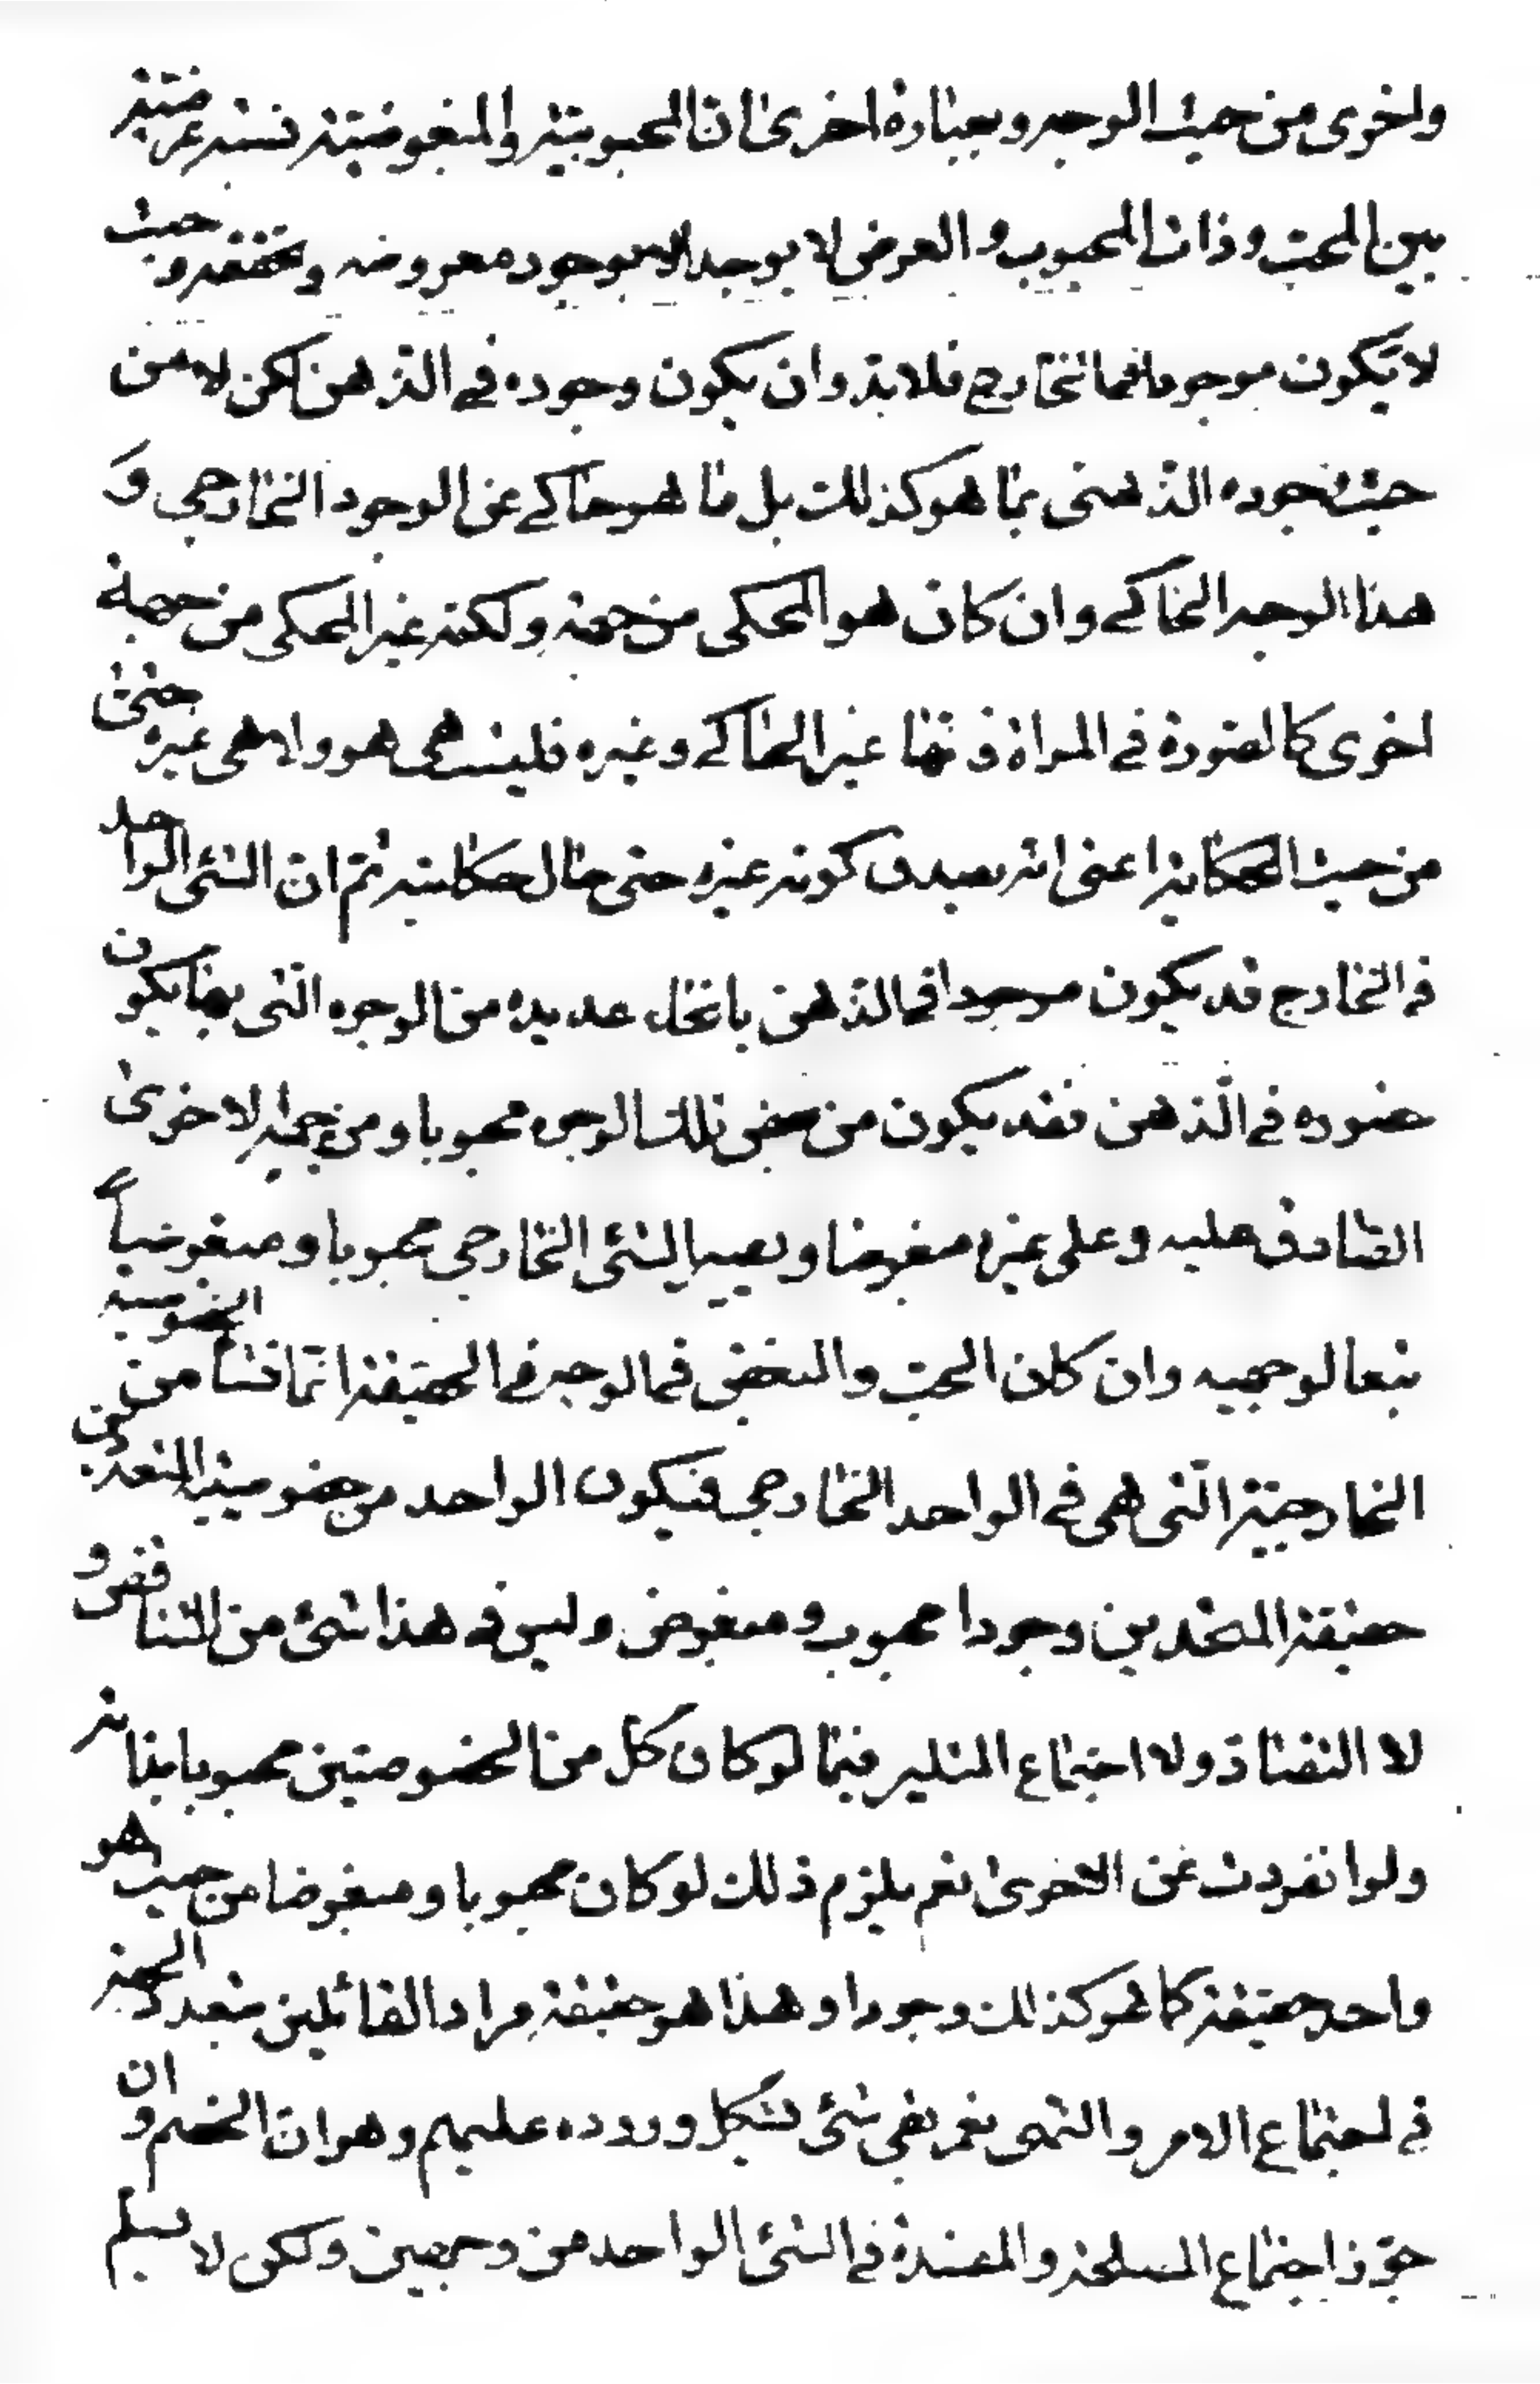 واخرى من حيث الوجه وبعبارة اخرى ان المحبوبية والمبغوضية نسبة عرضية
بين المحب وذات المحبوب والعرض لا يوجد الا بوجود معروضه وتحققه وحيث
لا يكون موجودا فى الخارج فلا بد وان يكون وجوده فى الذهن لكن لا من
حيث وجوده الذهنى بما هو كذلك بل بما هو حاكى عن الوجود الخارجى و
هذا الوجه الحاكى وان كان هو المحكى من جهة ولكنه غير المحكى من جهة
اخرى كالصورة فى المراة فانها غير الحاكى وغيره فليست هى هو ولا هى غيره حتى
من حيث الحكاية اعنى انه يصدق كونه غيره حتى حال حكايته ثم ان الشئ الواحد
فى الخارج قد يكون موجودا فى الذهن بانحاء عديده من الوجوه التى بها يكون
حضوره فى الذهن فقد يكون من بعض تلك الوجوه محبوبا ومن جهة الاخرى
الصادق عليه وعلى غيره مبغوضا ويصير الشئ الخارجى محبوبا ومبغوضاً
تبعا لوجهيه وان كان الحب والبغض فى الوجه فى الحقيقة انما نشأ من الخصوصية
الخارجية التى هى فى الواحد الخارجى فيكون الواحد من خصوصيتيه المتعددين
حقيقة المتحدين وجودا محبوب ومبغوض وليس فى هذا شئ من التناقض و
لا التضاد ولا اجتماع المثلين فيما لو كان كل من الخصوصيتين محبوبا بذاته
ولو انفردت عن الاخرى نعم يلزم ذلك لو كان محبوبا ومبغوضا من حيث هو
واحد حقيقة كما هو كذلك وجودا وهذا هو حقيقة مراد القائلين بتعدد الجهة
فى اجتماع الامر والنهى نعم بقى شئ يشكل وروده عليهم وهو ان الخصم وان
جوز اجتماع المصلحة والمفسدة فى الشئ الواحد من وجهين ولكن لا يسلم